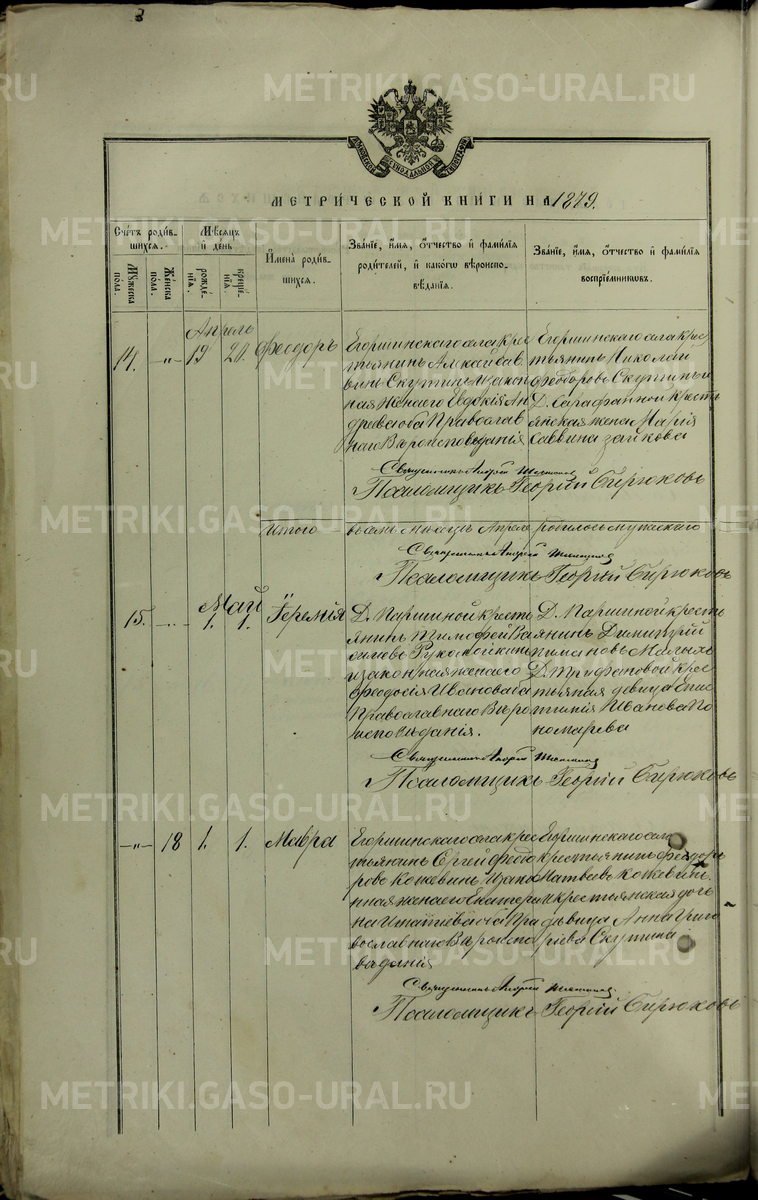 МЕТРИЧЕСКОЙ КНИГИ НА 1879.
Счетъ родив-
шихся.
Мѣсяцъ
и день
Мꙋжеска
пола.
Женска
пола.
рожде-
нїѧ.
креще-
нїѧ.
Имена родив-
шихся.
Званїе, имѧ, отчество и фамилїѧ
родителей, и какогѡ вѣроиспо-
вѣданїѧ.
Званїе, имѧ, отчество и фамилїѧ
воспрїемниковъ.
Апрель
14. -"- 19 20. Феодоръ
Егоршинскаго села крес
тьянинъ Алексѣй Сав
винъ Скутинъ и закон
ная жена его Евдокія Ан
дреева оба Православ
наго Вѣроисповѣданія
Егоршинскаго села крес
тьянинъ Николай
Феодоровъ Скутинъ и
Д. Серафаиной кресть
янская жена Марія
Саввина Зайкова
Священникъ Андрей
Псаломщикъ Георгій Бирюковъ
Итого
въ семъ мѣсяцѣ Апреле родилось мужескаго
Священникъ Андрей
Псаломщикъ Георгій Бирюковъ
Май
15. -"- 1. 1. Іеремія
Д. Паршиной кресть
янинъ Тимофей Ва
силевъ Рукомойкинъ
и законная жена его
Феодосія Иванова оба
Православнаго Вѣро
исповѣданія.
Д. Паршиной кресть
янинъ Димитрій
Д. Трифановой крес
тьянская девица Епис
тимія Иванова По
номарева
Священникъ Андрей
Псаломщикъ Георгій Бирюковъ
-"- 18 1. 1. Мавра
Егоршинскаго села крес
тьянинъ Сергей Феодо
ровъ Кожевинъ и зако
нная жена его Екатери
на Игнатіева оба Пра
вославнаго Вѣроиспо
вѣданія
Егоршинскаго села
крестьянинъ Феодоръ
Матвѣевъ Кожевинъ
и крестьянская дочь
девица Анна Григо
ріева Скутина
Священникъ Андрей
Псаломщикъ Георгій Бирюковъ
METRIKI.GASO-URAL.RU